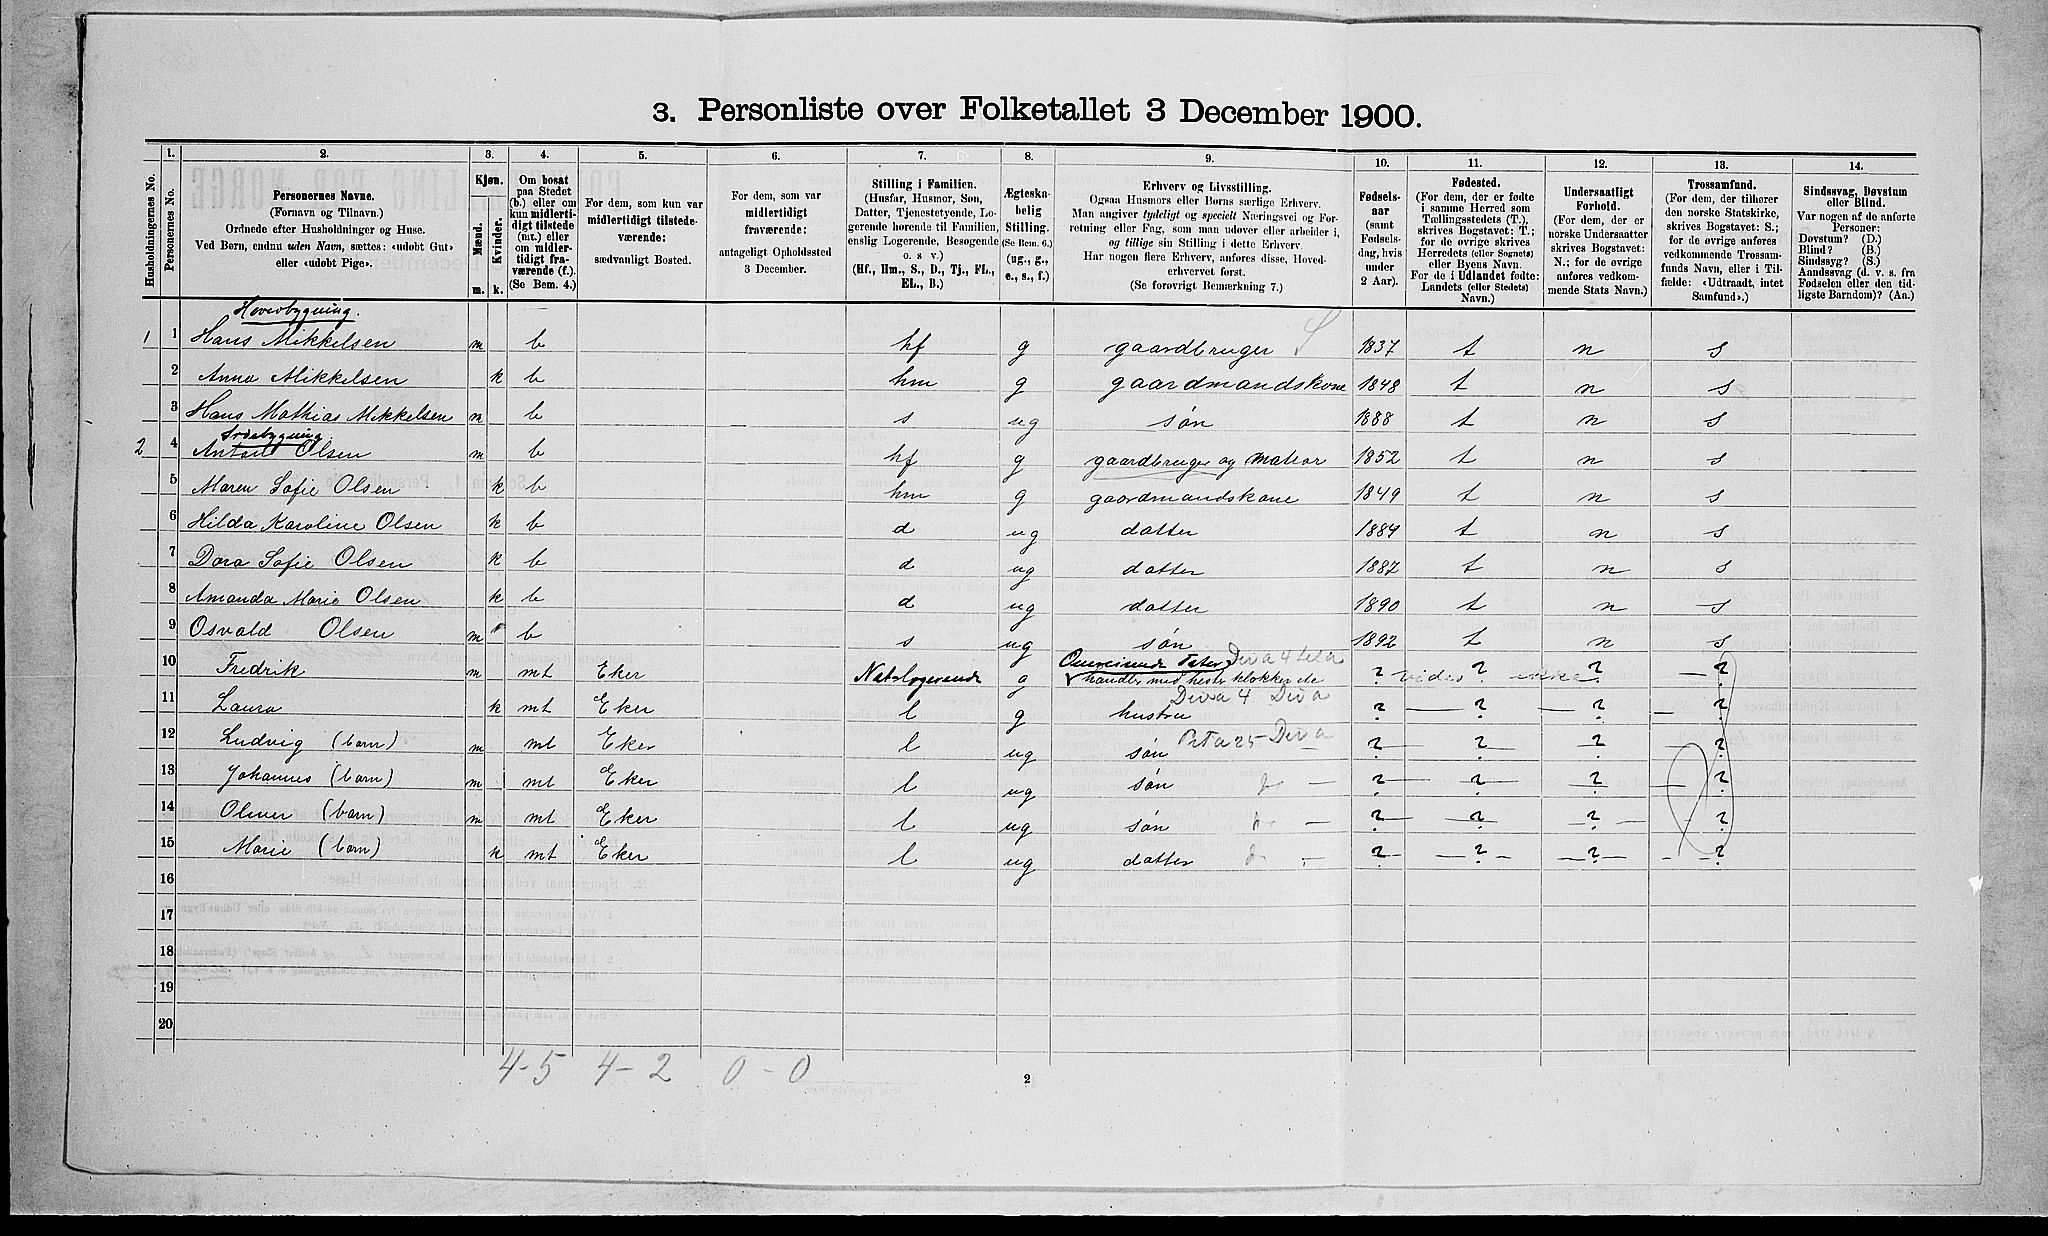 3. Personliste over Folketallet 3 December 1900.
1. 2. 3. 4. 5. 6. 7. 8. 9. 10. 11. 12. 13. 14.
Husholdningernes No.
Personernes No.
Personernes Navne.
(Fornavn og Tilnavn.)
Ordnede efter Husholdninger og Huse.
Ved Børn, endnu uden Navn, sættes: «udøbt Gut»
eller «udøbt Pige».
Kjøn.
Mænd.
Kvinder.
m. k.
Om bosat
paa Stedet
(b.) eller om
kun midlerti-
digt tilstede
(mt.) eller om
midler-
tidigt fra-
værende (f.).
(Se Bem. 4.)
For dem, som kun var
midlertidigt tilstede-
værende:
sædvanligt Bosted.
For dem, som var
midlertidigt
fraværende:
antageligt Opholdssted
3 December.
Stilling i Familien.
(Husfar, Husmor, Søn,
Datter, Tjenestetyende, Lo-
gerende hørende til Familien,
enslig Logerende, Besøgende
o. s. v.)
(Hf., Hm., S., D., Tj., FL.,
EL., B.)
Ægteska-
belig
Stilling.
(Se Bem. 6.)
(ug., g.,
e., s., f.)
Erhverv og Livsstilling.
Ogsaa Husmors eller Børns særlige Erhverv.
Man angiver tydeligt og specielt Næringsvei og For-
retning eller Fag, som man udøver eller arbeider i,
og tillige sin Stilling i dette Erhverv.
Har nogen flere Erhverv, anføres disse, Hoved-
erhvervet først.
(Se forøvrigt Bemærkning 7.)
Fødsels-
aar
(samt
Fødsels-
dag, hvis
under
2 Aar).
Fødested.
(For dem, der er fødte
i samme Herred som
Tællingsstedets (T.),
skrives Bogstavet: T.;
for de øvrige skrives
Herredets (eller Sognets)
eller Byens Navn.
For de i Udlandet fødte:
Landets (eller Stedets)
Navn.)
Undersaatligt
Forhold.
(For dem, der er
norske Undersaatter
skrives Bogstavet:
N.; for de øvrige
anføres vedkom-
mende Stats Navn.)
Trossamfund.
(For dem, der tilhører
den norske Statskirke,
skrives Bogstavet: S.;
for de øvrige anføres
vedkommende Trossam-
funds Navn, eller i Til-
fælde: «Udtraadt, intet
Samfund».)
Sindssvag, Døvstum
eller Blind.
Var nogen af de anførte
Personer:
Døvstum? (D.)
Blind? (B.)
Sindssyg? (S.)
Aandssvag (d. v. s. fra
Fødselen eller den tid-
ligste Barndom)? (Aa.)
Hovedbygning.
1 1 Hans Mikkelsen m b hf g gaardbruger 1837 t n s
2 Anna Mikkelsen k b hm g gaardmandskone 1848 t n s
3 Hans Mathias Mikkelsen m b s ug søn 1888 t n s
2 4 Anton Olsen m b hf g gaardbruger og 1852 t n s
5 Maren Sofie Olsen k b hm g gaardmandskone 1849 t n s
6 Hilda Karoline Olsen k b d ug datter 1884 t n s
7 Dora Sofie Olsen k b d ug datter 1887 t n s
8 Amanda Marie Olsen k b d ug datter 1890 t n s
9 Osvald Olsen m b s ug søn 1892 t n s
10 Fredrik m mt Eker Natlogerende g handler med heste klokker etc ? vides ? ikke ? — ?
11 Laura k mt Eker l g hustru ? — ? — ? — ?
12 Ludvig (barn) m mt Eker l ug søn ? — ? — ? — ?
13 Johannes (barn) m mt Eker l ug søn ? — ? — ? — ?
14 Oliver (barn) m mt Eker l ug søn ? — ? — ? — ?
15 Marie (barn) k mt Eker l ug datter ? — ? — ? — ?
16
17
18
19
20
4-5 4-2 0-0
2